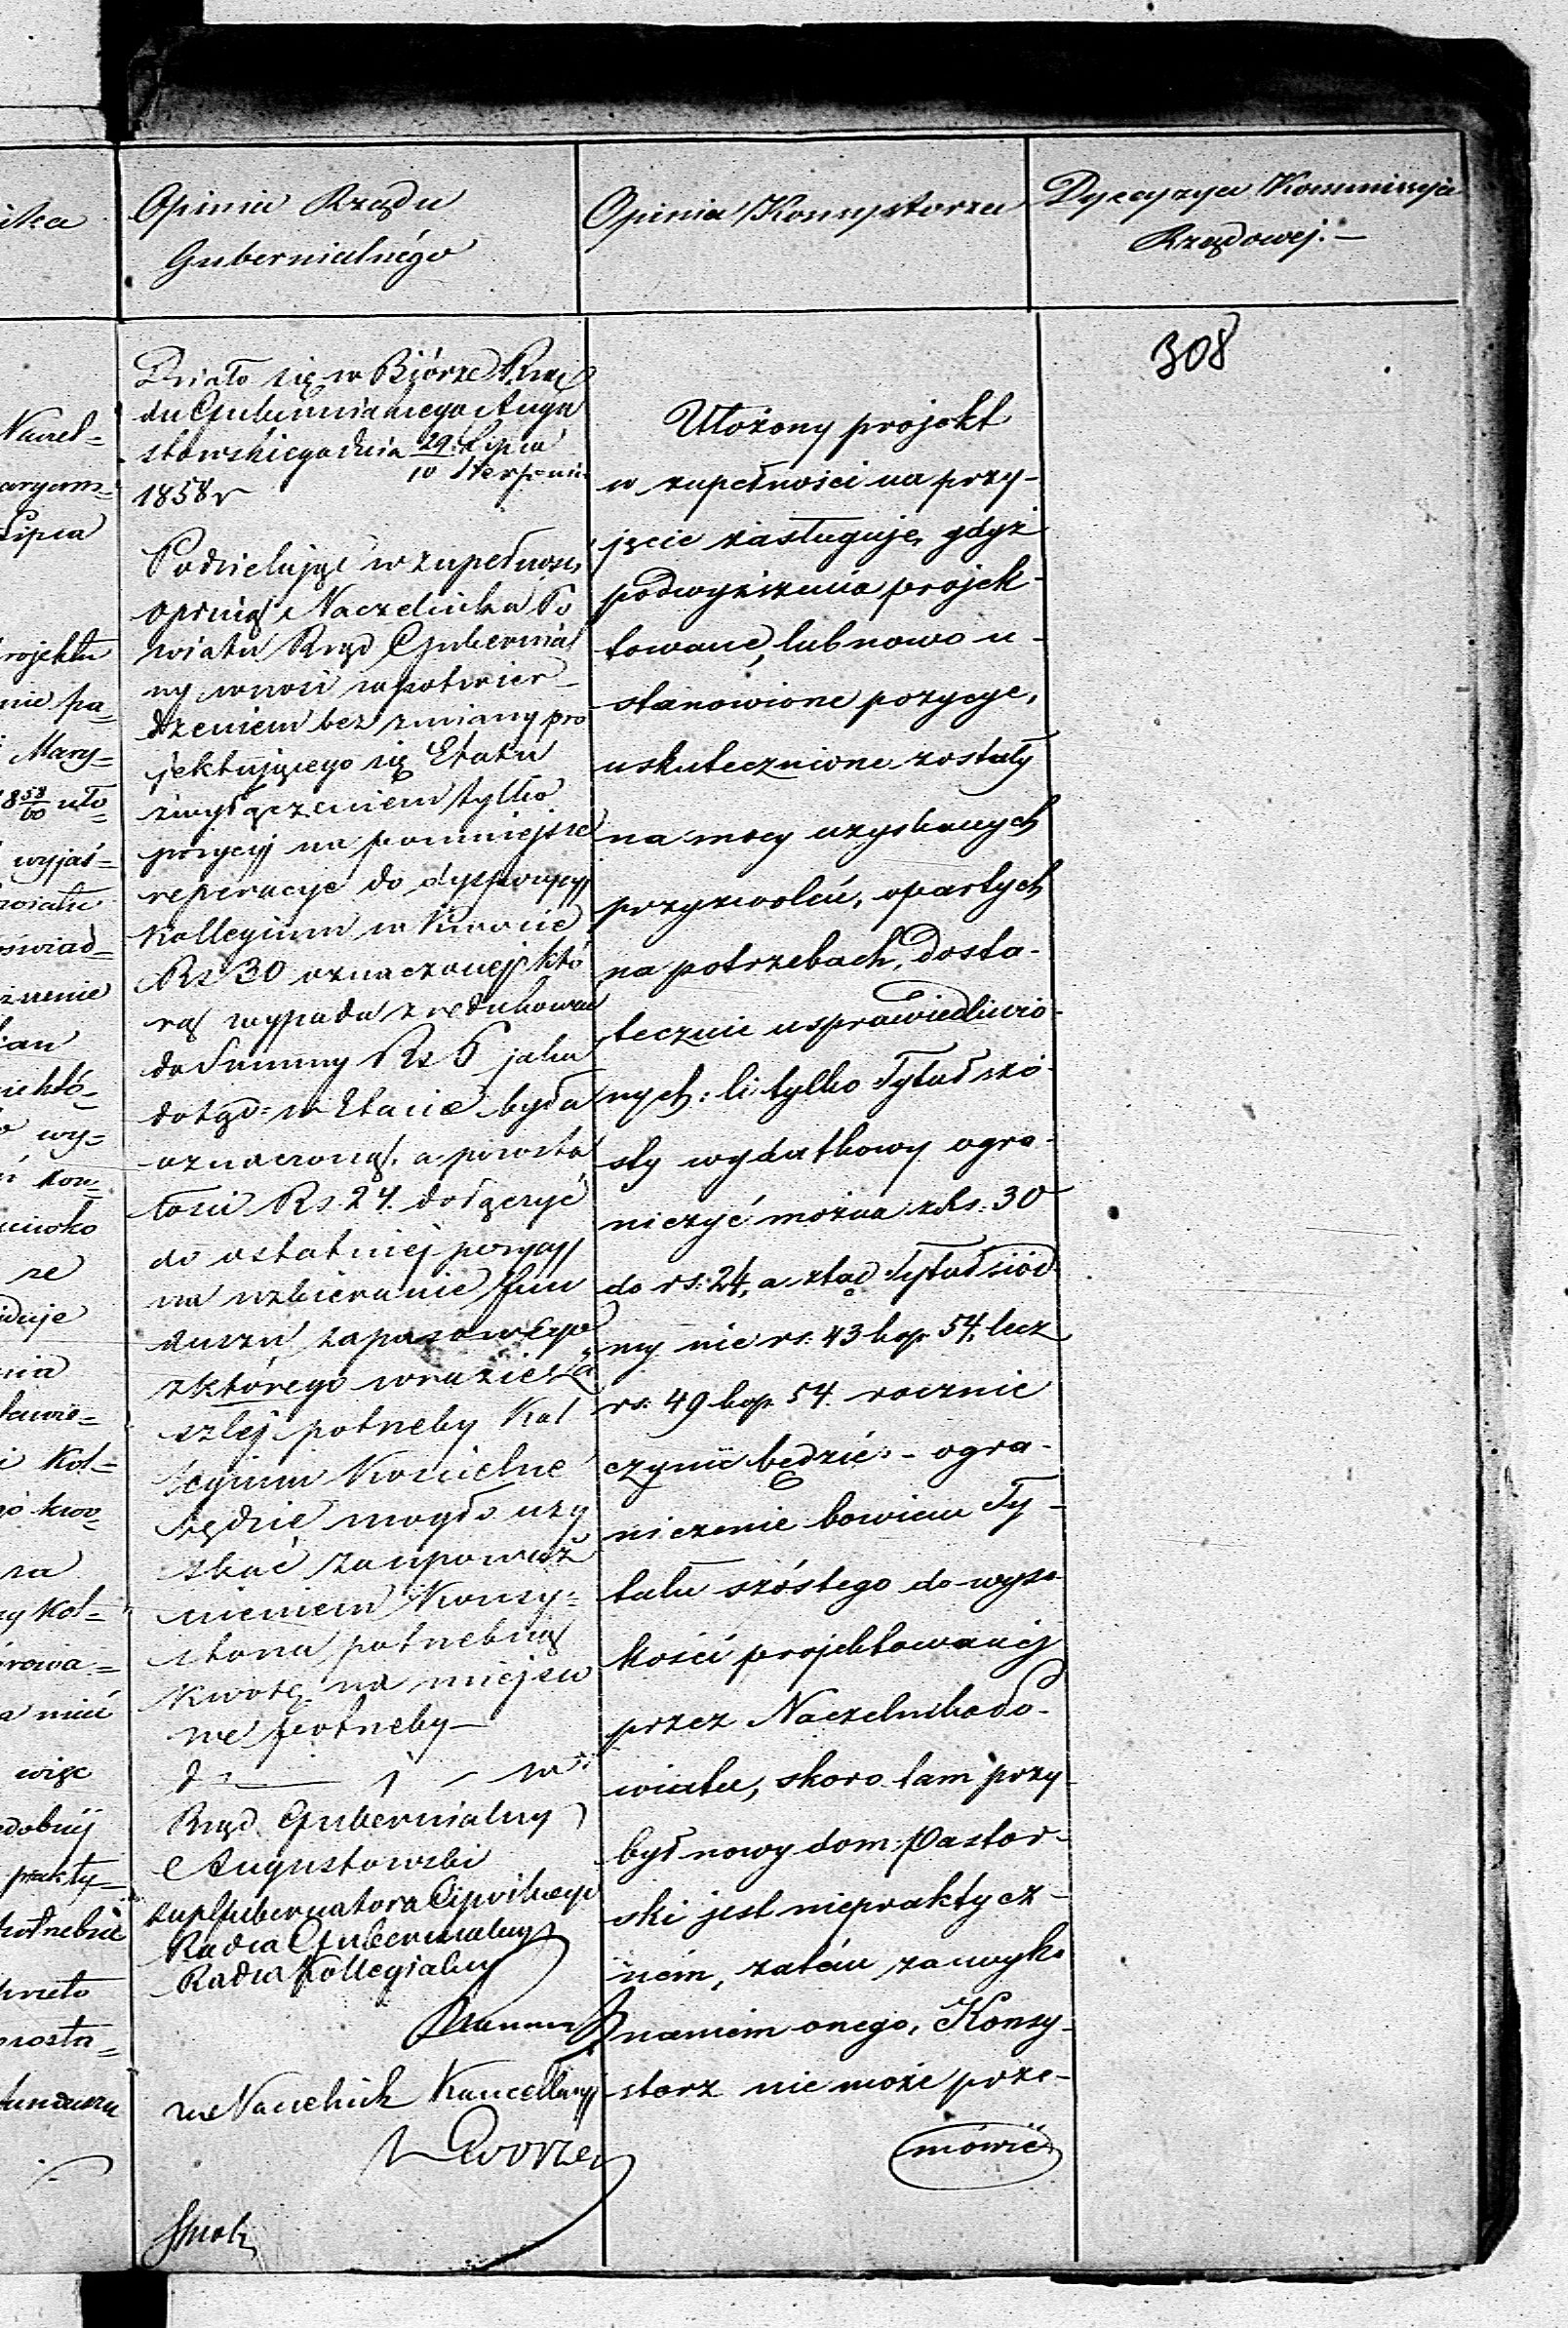 Opinia Rządu
Gubernialnégo
Opinia Konsystorza
Dyecyzya Kommissyi
Rządowej.—
308
Działo się w Biórze Rzą
du Gubernialnego Augu
stowskiego dnia 29 Lipca
10 Sierpnia
1858 r
Podzielając w zupełnosci
opinią Naczelnika Po
wiatu Rząd Gubernial
ny wnosi zapotwier-
dzeniem bez zmiany pro
jektującego się Etatu
zwyłączeniem tylko
pozycyj na pomniejsze
reperacye do dyspozycyj
Kollegium w kwocie
Rs 30 oznaczonej któ
rą wypada zredukować
do Summy Rs 6 jaka
dotąd w Etacie była
oznaczoną, a pozosta
łosci Rs. 24. dołączyć
do ostatniej pozycyj
na uzbieranie fun
duszu zapasowego
zktórego wrazie za
szłej potrzeby Kol
legium Koscielne
będzie mogło uzy
skać zaupoważ
nieniem Konsy=
storza potrzebną
kwotę na miejsco
we potrzeby—
Rząd Gubernialny
Augustowski
zup Gubernatora Cywilnego
Radca Gubernialny
Radca Kollegialny
Naczelnik Kancellaryj
Ułożony projekt
w zupełności na przy-
jęcie zasługuje, gdyż
podwyższenia projek-
towane, lub nowo u-
stanowione pozycye,
uskutecznione zostały
na mocy uzyskanych
przyzwoleń, opartych
na potrzebach, dosta-
tecznie usprawiedliwio-
nych: li tylko Tytuł szó-
sty wydatkowy ogra-
niczyć można z Rs. 30
do rs: 24, a ztąd Tytuł siód-
my nie rs. 43 kop. 54, lecz
rs. 49 kop. 54. rocznie
czynić będzie. – ogra-
niczenie bowiem Ty-
tułu szóstego do wyso-
kości projektowanej
przez Naczelnika Po-
wiatu, skoro tam przy-
był nowy dom Pastor-
ski jest niepraktycz-
ném, zatém za wyko
naniem onego, Konsy-
storz nie może prze-
mówić
ika
Lipca
projektu
nie pa=
Mary=
wyjaś=
oświad=
wy=
duje
Kol=
sa
więc